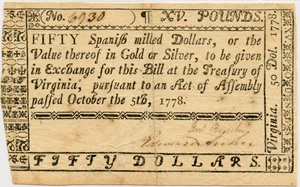 (No. 6930) ¶ XV. POUNDS.
FIFTY Spaniſh milled Dollars, or the
Value thereof in Gold or Silver, to be given
in Exchange for this Bill at the Treaſury of
Virginia, purſuant to an Act of Aſſembly
paſſed October the 5th, 1778.
Virginia, 50 Dol. 1778.
FIFTY DOLLARS.